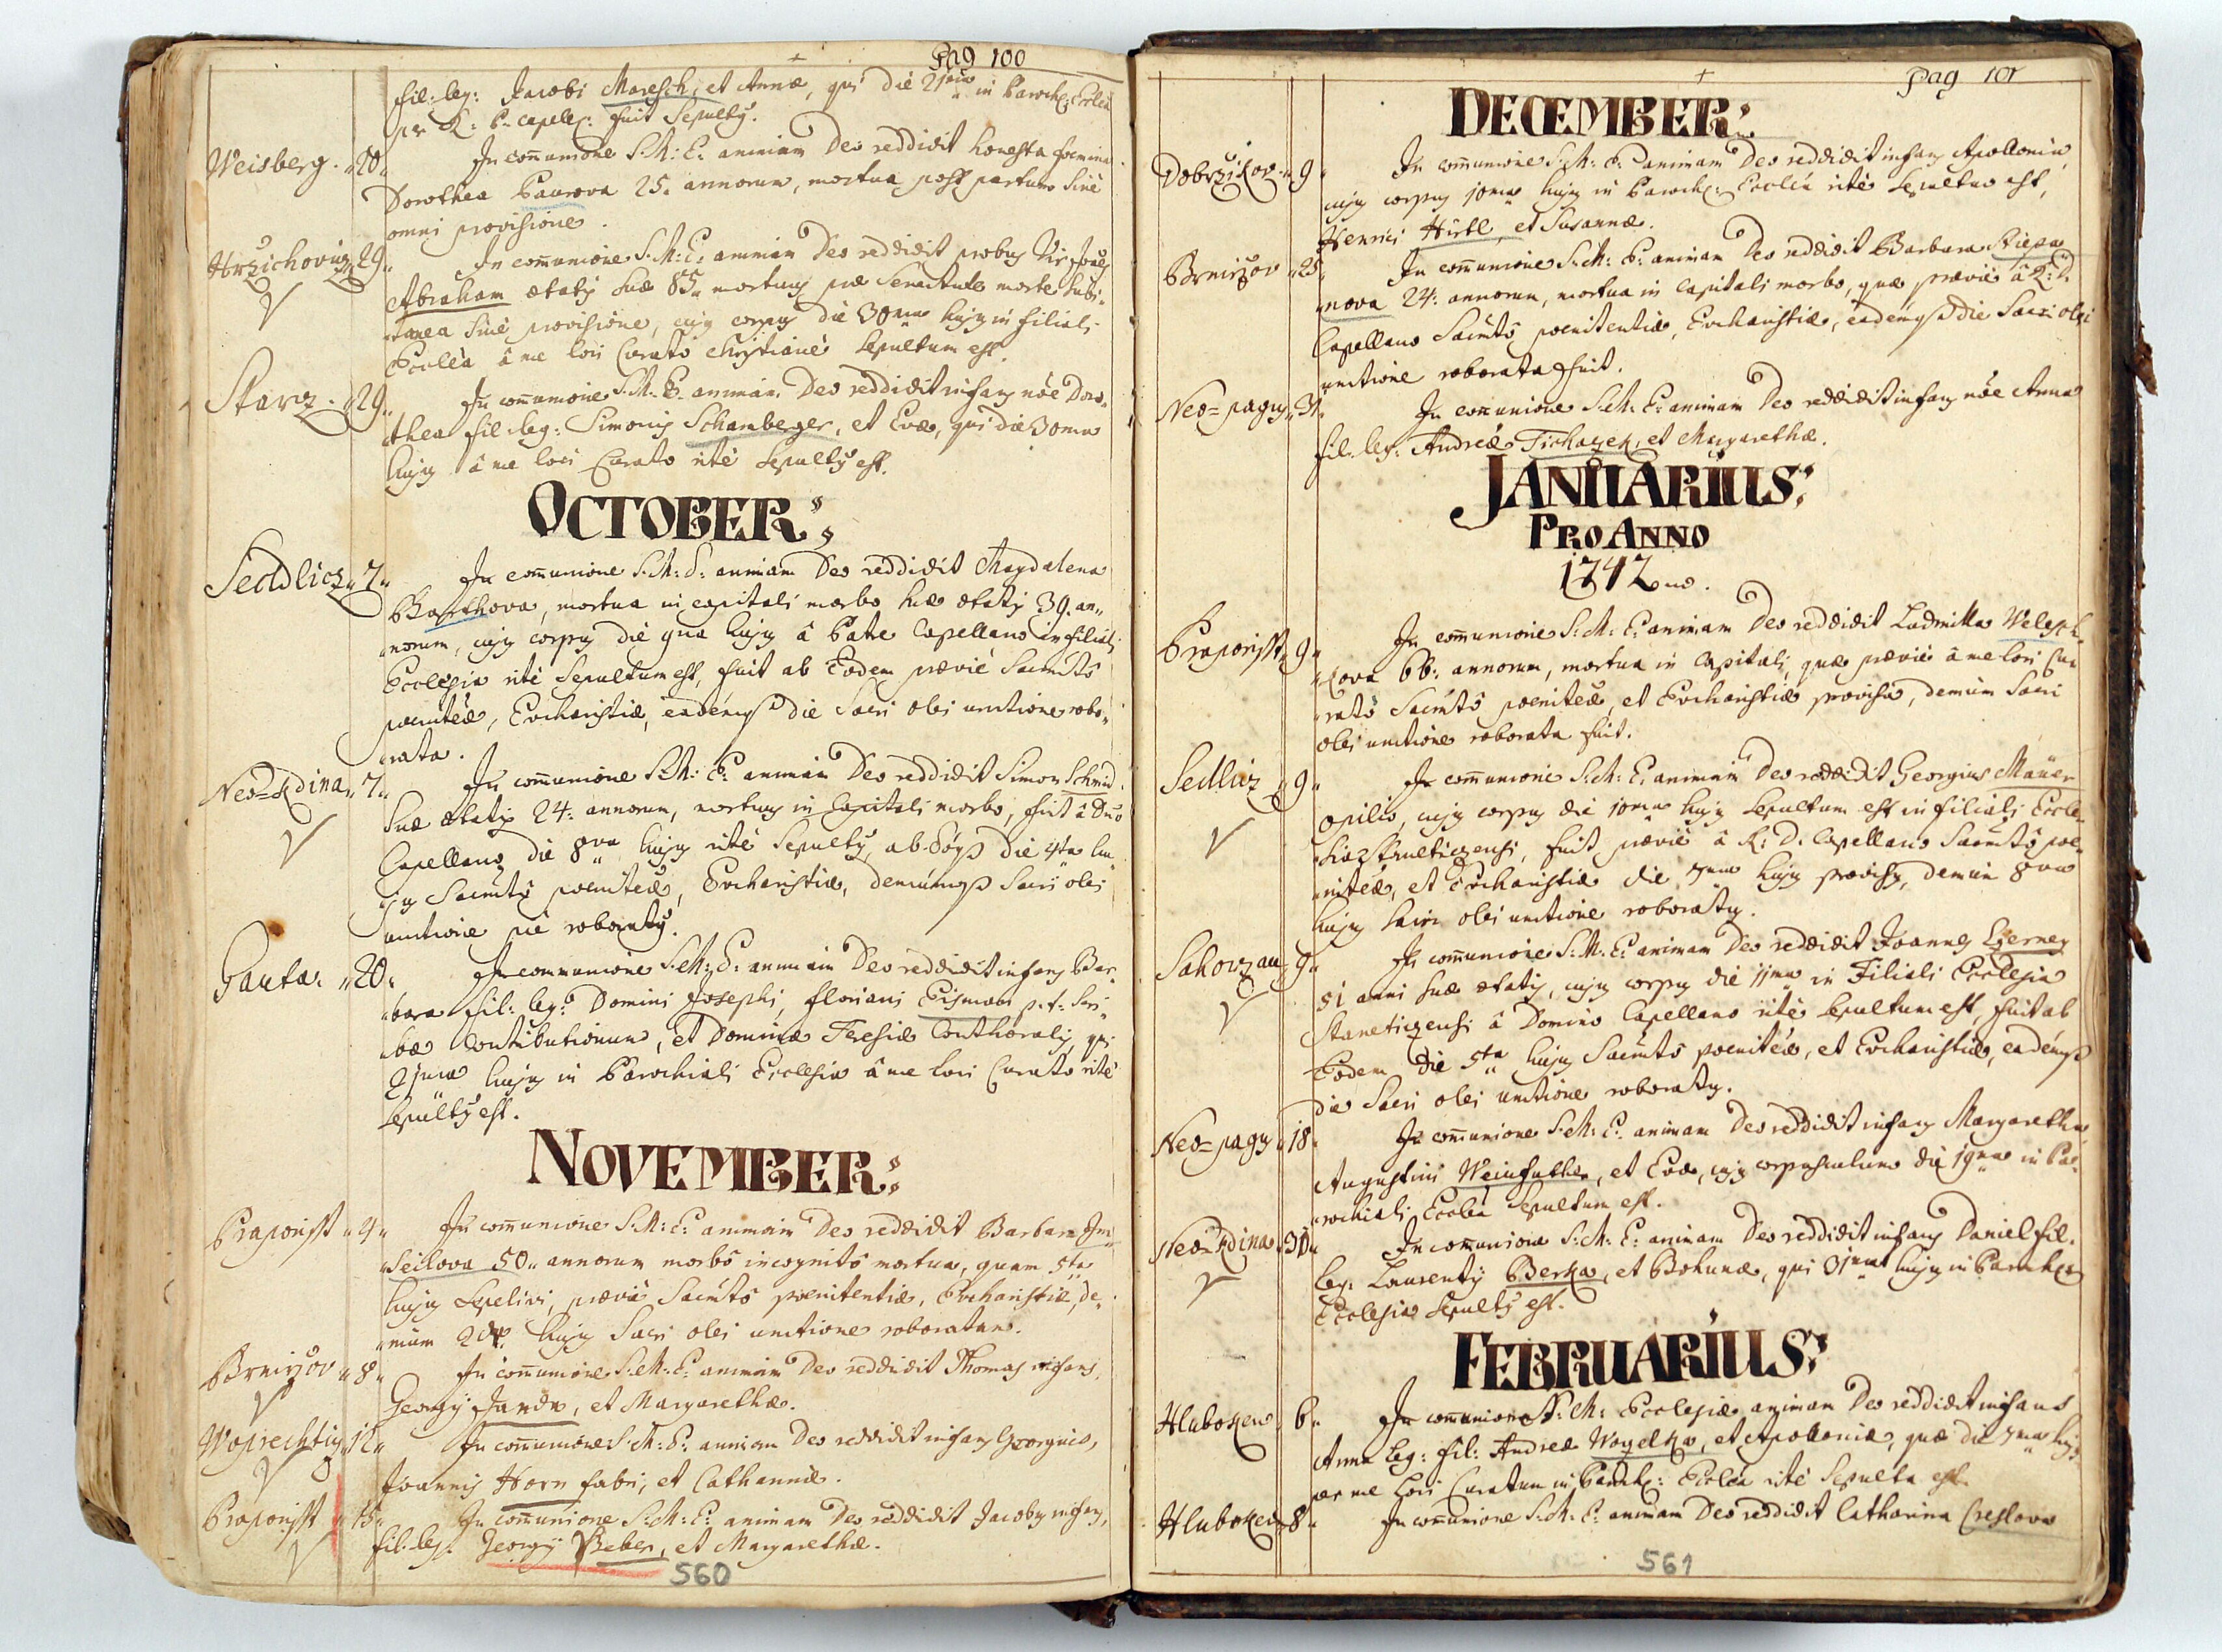 Pag 100
fil: leg: Jacobi Maresch, et Annæ, qui die 21ma in Paroch: Ecclia
pr R: P. capell: fuit Sepultus.
Weisberg. 20. In com̄unione S: M: E: animam Deo reddidit honesta foemina
Dorothea Paurova 25. annorum, mortua post partum Sine
omni provisione.
29. In com̄unione S: M: E: animam Deo reddidit probus Vir
Abraham ætatis Suæ 85. mortuus præ Senectute morte subi-
tanea Sinè provisione, cujus corpus die 30ma hujus in filiali
Ecclia â me loci Curato Christianè Sepultum est.
Starz. 29. In com̄unione S: M: E: animam Deo reddidit infans nõe Doro,,
,,thea fil: leg: Simonis Schamberger, et Evæ, qui die 30ma
hujus â me loci Curato ritè Sepultus est.
OCTOBER;
Sedlicz 7. In com̄unione S: M: E: animam Deo reddidit Magdalena
Barthova, mortua in capitali morbo suæ ætatis 39. an,,
,,norum, cujus corpus die 9na hujus â Patre Capellano in filiali
Ecclesia ritè Sepultum est, fuit ab Eodem præviè Sacm̄tô
poenitæ, Eucharistiæ, eademque die Sacri olei unctione robo,,
,,rata.
Neo=Kdina 7. In com̄unione S: M: E: animam Deo reddidit Simon Schmid.
Suæ ætatis 24. annorum, mortuus in Capitali morbo, fuit â Dño
Capellano die 8va hujus ritè Sepultus, die 4ta hu,,
,,jus Sacm̄tô poenitæ, Eucharistiæ, demumque Sacri olei
unctione piè roboratus.
Gauta. 20. In communione S: M: E: animam Deo reddidit infans Bar,,
,,bara fil: leg: Domini Josephi, Floriani Eisman p. t. Scri,,
,,bæ Contributionum, et Dominæ Teresiæ Conthoralis, qui
21ma hujus in Parochiali Ecclesia â me loci Curato ritè
Sepultus est.
NOVEMBER:
Praporisst 4. In com̄unione S: M: E: animam Deo reddidit Barbara
50. annorum morbô incognitô mortua, quam 5ta
hujus Sepelivi, præviè Sacm̄tô poenitentiæ, Eucharistiæ, de,,
,,mum 2da hujus Sacri olei unctione roboratam.
Brnirzov 8. In com̄unione S: M: E: animam Deo reddidit Thomas infans,
Georgij Janda, et Margarethæ.
Woprechtiz 12. In com̄unione S: M: E: animam Deo reddidit infans Georgius,
Joannis Horn fabri, et Catharinæ.
Praporisst 15. In com̄unione S: M: E: animam Deo reddidit Jacobus infans,
fil: leg: Georgij Weber, et Margarethæ.
560
Pag 101
DECEMBER:
Dobrzikov 9. In com̄unione S: M: E: animam Deo reddidit infans Apollonia,
cujus corpus 10ma hujus in Paroch: Ecclia ritè Sepultum est,
Henrici Hirtl, et Susannæ.
Brnirzov 25. In com̄unione S: M: E: animam Deo reddidit Barbara Stiepa,,
,,nova 24. annorum, mortua in Capitali morbo, quæ præviè â R: D:
Capellano Sacm̄tô poenitentiæ, Eucharistiæ, eademque die Sacri olei
unctione roborata fuit.
Neo=pagus 31. In com̄unione S: M: E: animam Deo reddidit infans nõe Anna
fil: leg: Andreæ Tichaczek, et Margarethæ.
JANUARIUS:
PRO ANNO
1742.
Praporisst 9. In com̄unione S: M: E: animam Deo reddidit Ludmilla
66. annorum, mortua in Capitali, quæ præviè â me loci Cu,,
,,rato Sacm̄tô poenitæ, et Eucharistiæ provisa, demum Sacri
olei unctione roborata fuit.
Sedlicz 9. In com̄unione S: M: E: animam Deo reddidit Georgius Maüer
opilio, cujus corpus die 10ma hujus Sepultum est in filiali Eccle,,
fuit præviè â R: D: Capellano Sacm̄tô poe,,
,,nitæ, et Eucharistiæ die 7ma hujus provisus, demum 8va
hujus Sacri olei unctione roboratus.
Sakorzan 9. In com̄unione S: M: E: animam Deo reddidit Joannes Czerney
51 anni suæ ætatis, cujus corpus die 11ma in Filiali Ecclesia
Staneticzensi â Domino Capellano ritè Sepultum est, fuit ab
Eodem die 5ta hujus Sacm̄tô poenitæ, et Eucharistiæ, eademque
die Sacri olei unctione roboratus.
Neo=pagus 18. In com̄unione S: M: E: animam Deo reddidit infans Margaretha,
Augustini Weinfurther, et Evæ, cujus corpusculum die 19na in Pa,,
,,rochiali Ecclia Sepultum est.
Neo=Kdina 30. In com̄unione S: M: E: animam Deo reddidit infans Daniel fil.
leg: Laurentij Berka, et Bohunæ, qui 31ma hujus in Paroch:
Ecclesia Sepultus est.
FEBRUARIUS:
Hluboken 6. In com̄unione S: M: Ecclesiæ animam Deo reddidit infans
Anna leg: fil: Andreæ Woyelka, et Apolloniæ, quæ die 7ma hujus
per me loci Curatum in Paroch: Ecclia ritè Sepulta est.
Hluboken 8. In com̄unione S: M: E: animam Deo reddidit Catharina Creslova
561